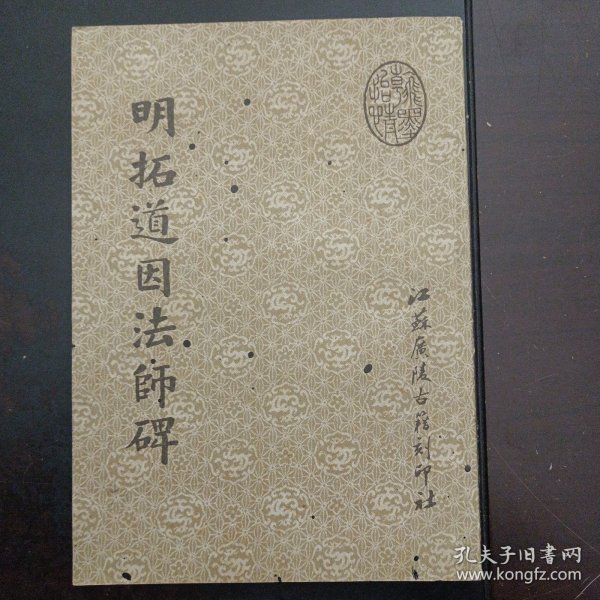 明拓道因法師碑
江蘇廣陵古籍刻印社
孔夫子旧書网
www.kongfz.com